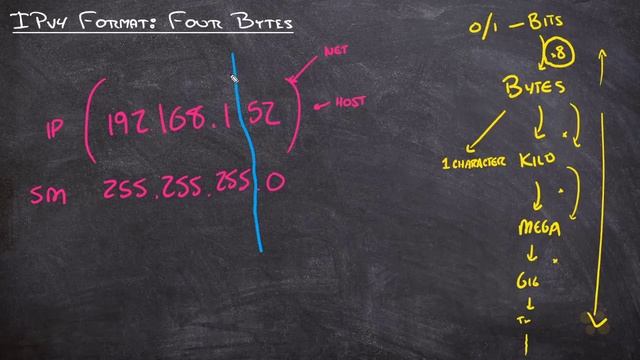 IPv4 FORMAT: FOUR BYTES
0/1 – BITS
.8
BYTES
NET
IP (192 168.1 52)
HOST
1 CHARACTER KILO
SM 255.255.255.0
MEGA
GIG